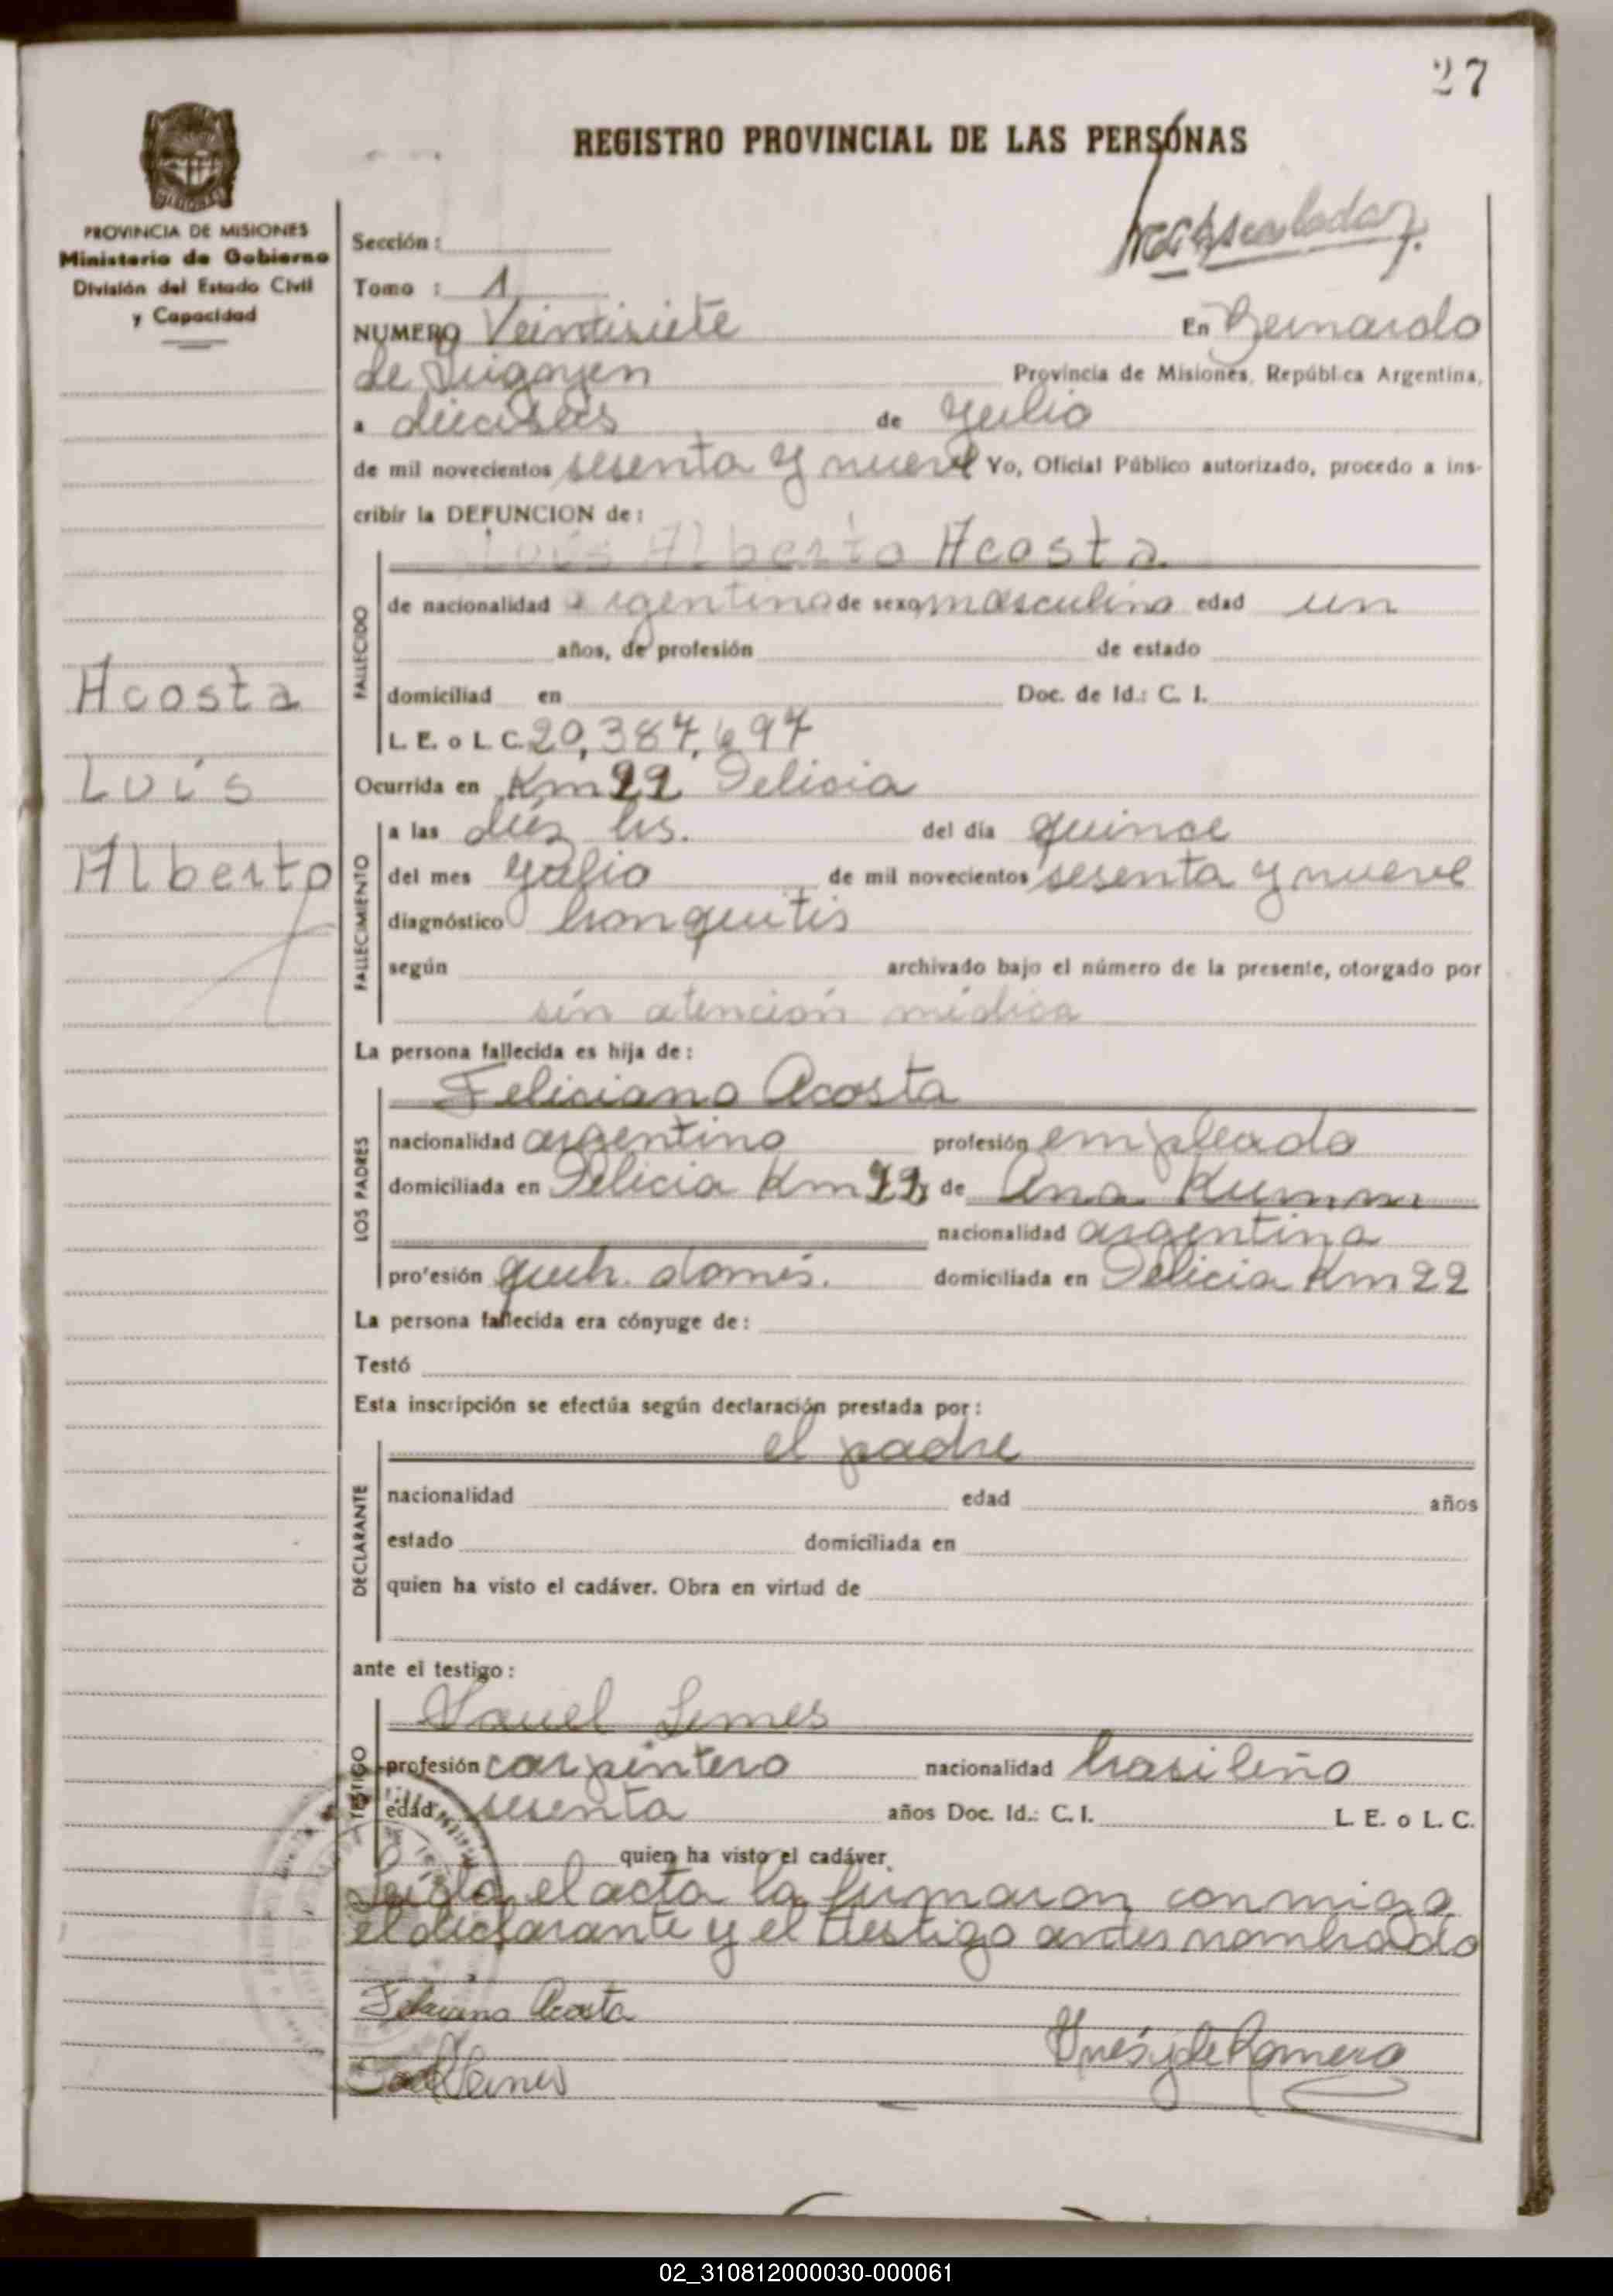 27
REGISTRO PROVINCIAL DE LAS PERSONAS
PROVINCIA DE MISIONES
Ministerio de Gobierno
División del Estado Civil
y Capacidad
Acosta
Luis
Alberto
Sección :
Tomo : 1
NUMERO Veintisiete En Bernardo
de Irigoyen Provincia de Misiones, República Argentina,
a dieciseis de Julio
de mil novecientos sesenta y nueve Yo, Oficial Público autorizado, procedo a ins-
cribir la DEFUNCION de :
Luis Alberto Acosta
FALLECIDO
de nacionalidad argentina de sexo masculino edad un
años, de profesión de estado
domiciliad en Doc. de Id.: C. I.
L. E. o L C. 20,387,697
Ocurrida en Km 22 Delicia
FALLECIMIENTO
a las diez hs. del día quince
del mes Julio de mil novecientos sesenta y nueve
diagnóstico bronquitis
según archivado bajo el número de la presente, otorgado por
sin atención médica
La persona fallecida es hija de :
Feliciano Acosta
LOS PADRES
nacionalidad argentino profesión empleado
domiciliada en Delicia Km 22 y de Ana Kumm
nacionalidad argentina
profesión queh. domés. domiciliada en Delicia Km 22
La persona fallecida era cónyuge de :
Testó
Esta inscripción se efectúa según declaración prestada por :
el padre
DECLARANTE
nacionalidad edad años
estado domiciliada en
quien ha visto el cadáver. Obra en virtud de
ante el testigo :
Lemes
TESTIGO
profesión carpintero nacionalidad brasileño
edad sesenta años Doc. Id.: C. I. L. E. o L. C.
quien ha visto el cadáver.
Leida el acta la firmaron conmigo
el declarante y el testigo antes nombrado
Feliciano Acosta
Lemes
de Romero
02_310812000030-000061